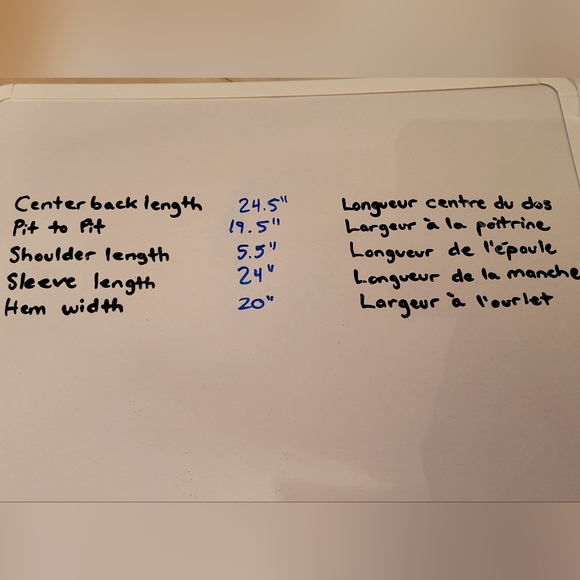 Center back length 24.5" Longueur centre du dos
Pit to Pit 19.5" Largeur à la poitrine
Shoulder length 5.5" Longueur de l'épaule
Sleeve length 24" Longueur de la manche
Hem width 20" Largeur à l'ourlet